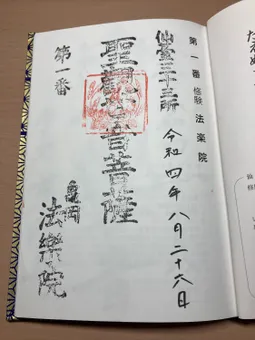 第一番 修験 法楽院
令和四年八月二十六日
仙臺三十三所
聖觀世音菩薩
第一番
亀岡
法樂院